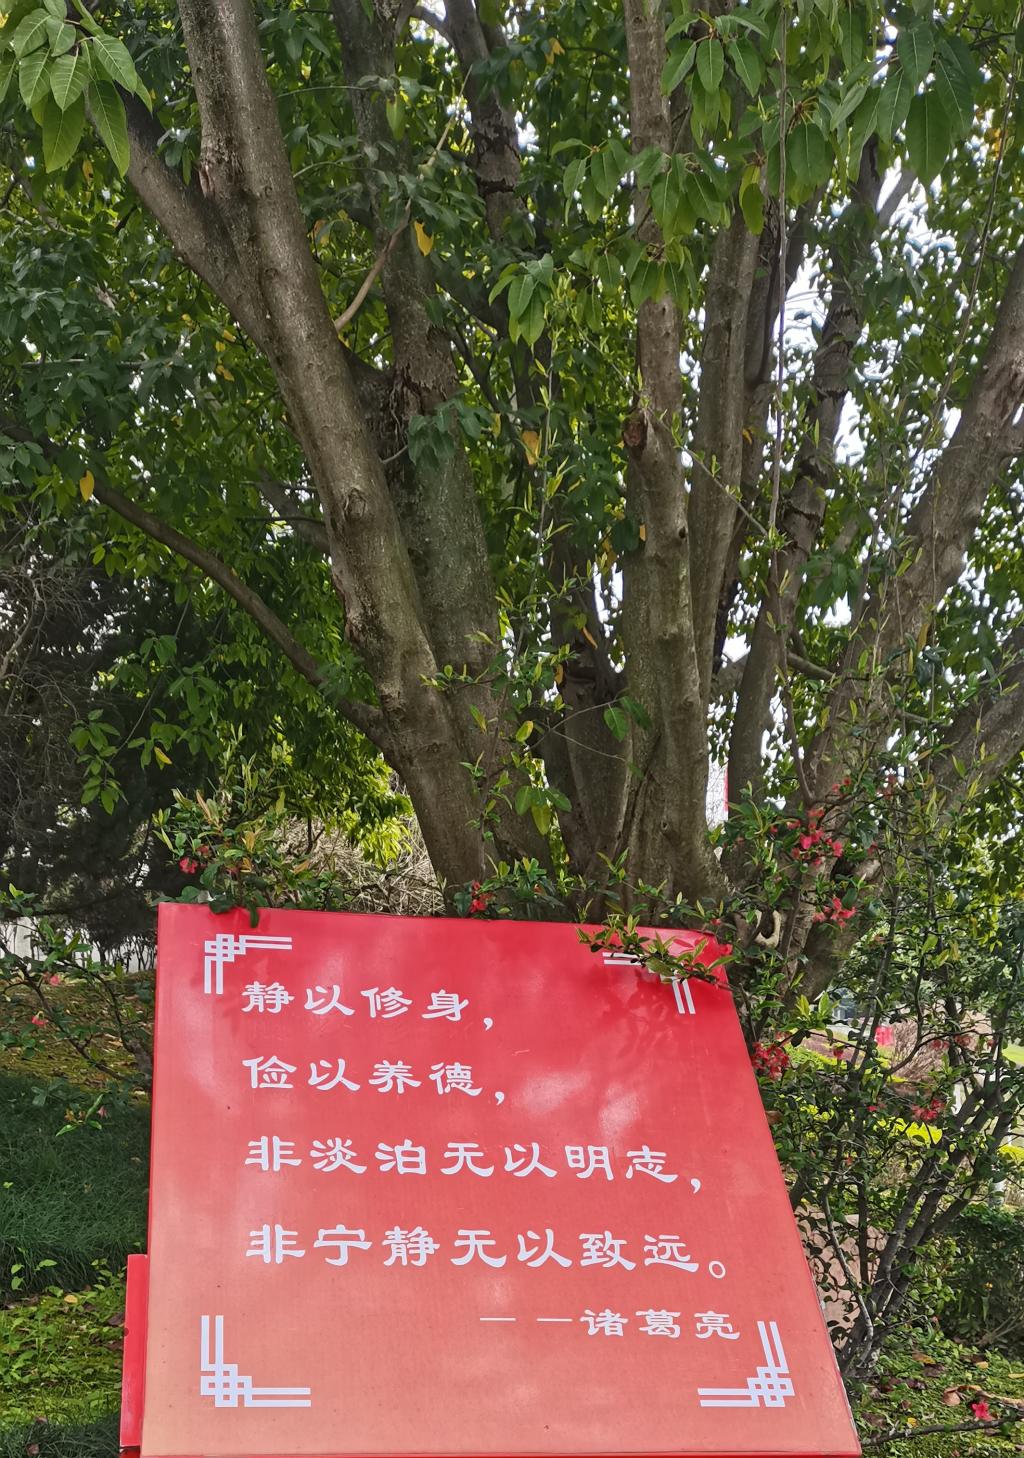 静以修身，
俭以养德，
非淡泊无以明志，
非宁静无以致远。
——诸葛亮